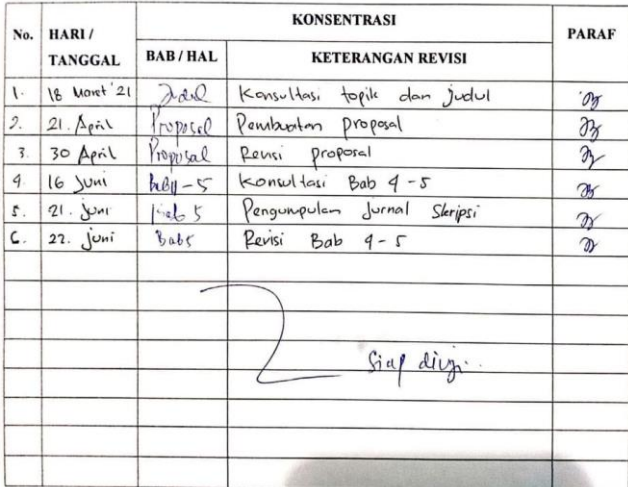 KONSENTRASI
No. HARI / TANGGAL BAB / HAL KETERANGAN REVISI PARAF
1. 18 Maret '21 Judul Konsultasi topik dan judul
2. 21. April Proposal Pembuatan proposal
3. 30 April Proposal Revisi proposal
4. 16 Juni Bab 4-5 Konsultasi Bab 4-5
5. 21. Juni Bab 5 Pengumpulan Jurnal Skripsi
6. 22. Juni Bab 5 Revisi Bab 4-5
Siap diuji.